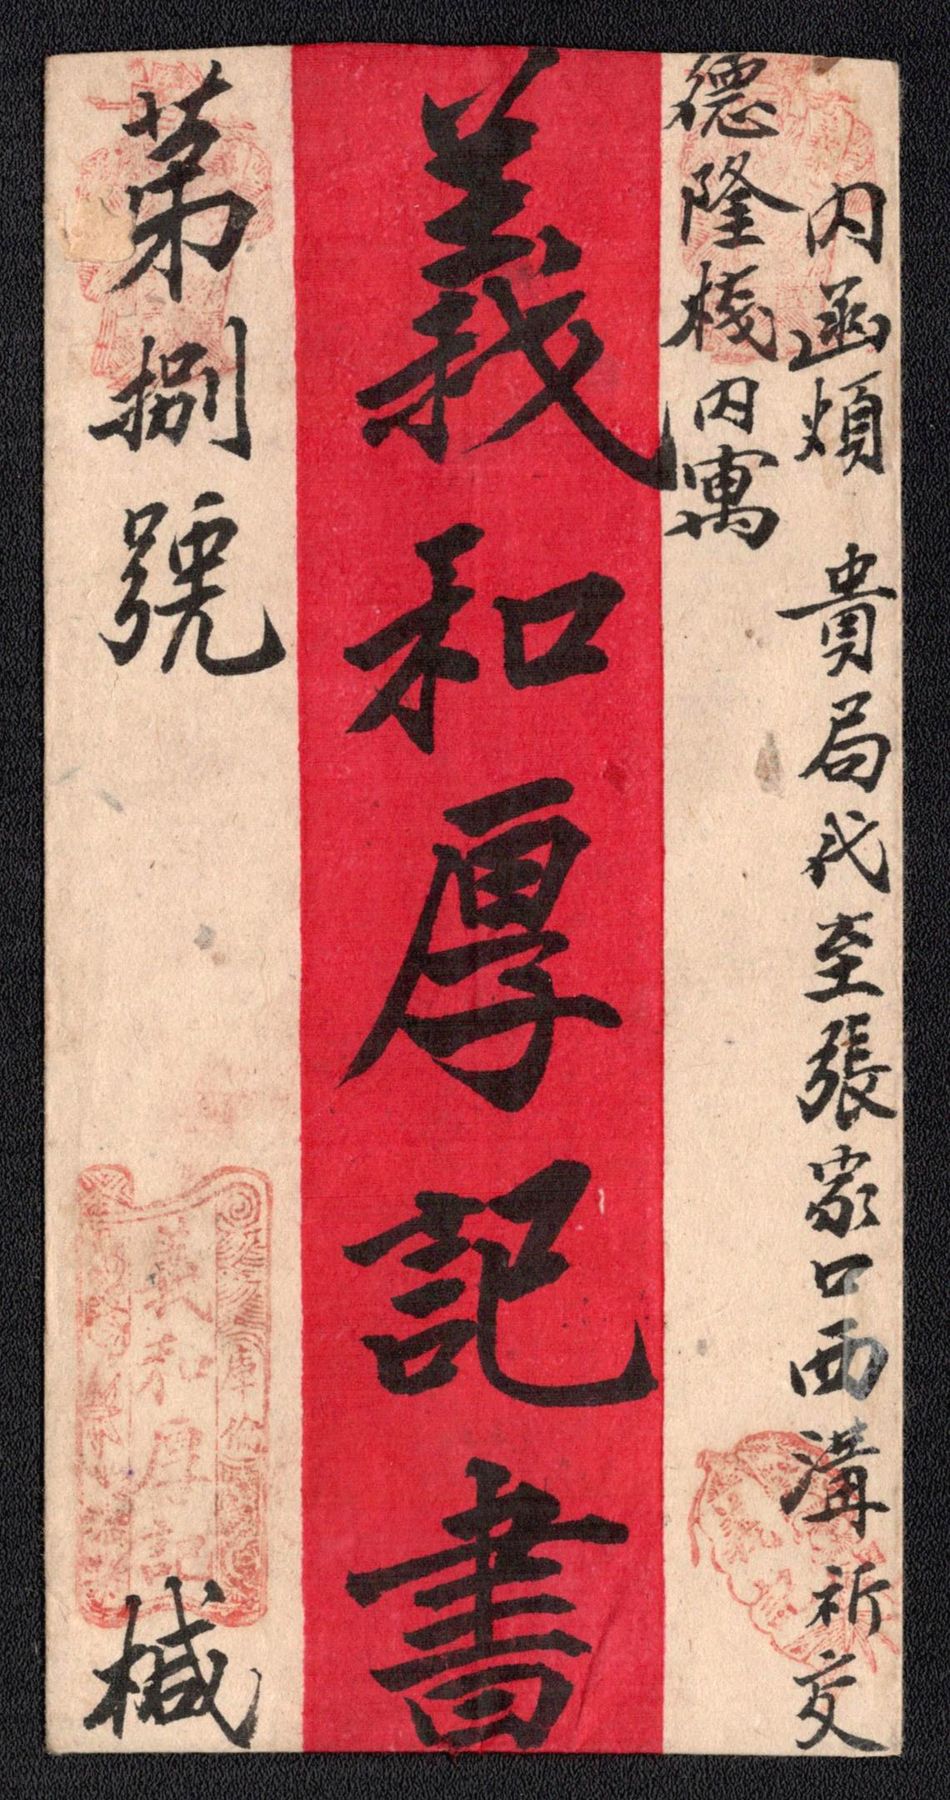 內函煩 貴局代至張家口西溝祈交
德隆棧內寓
義和厚記書
第捌號 椷
義和厚記
庫倫